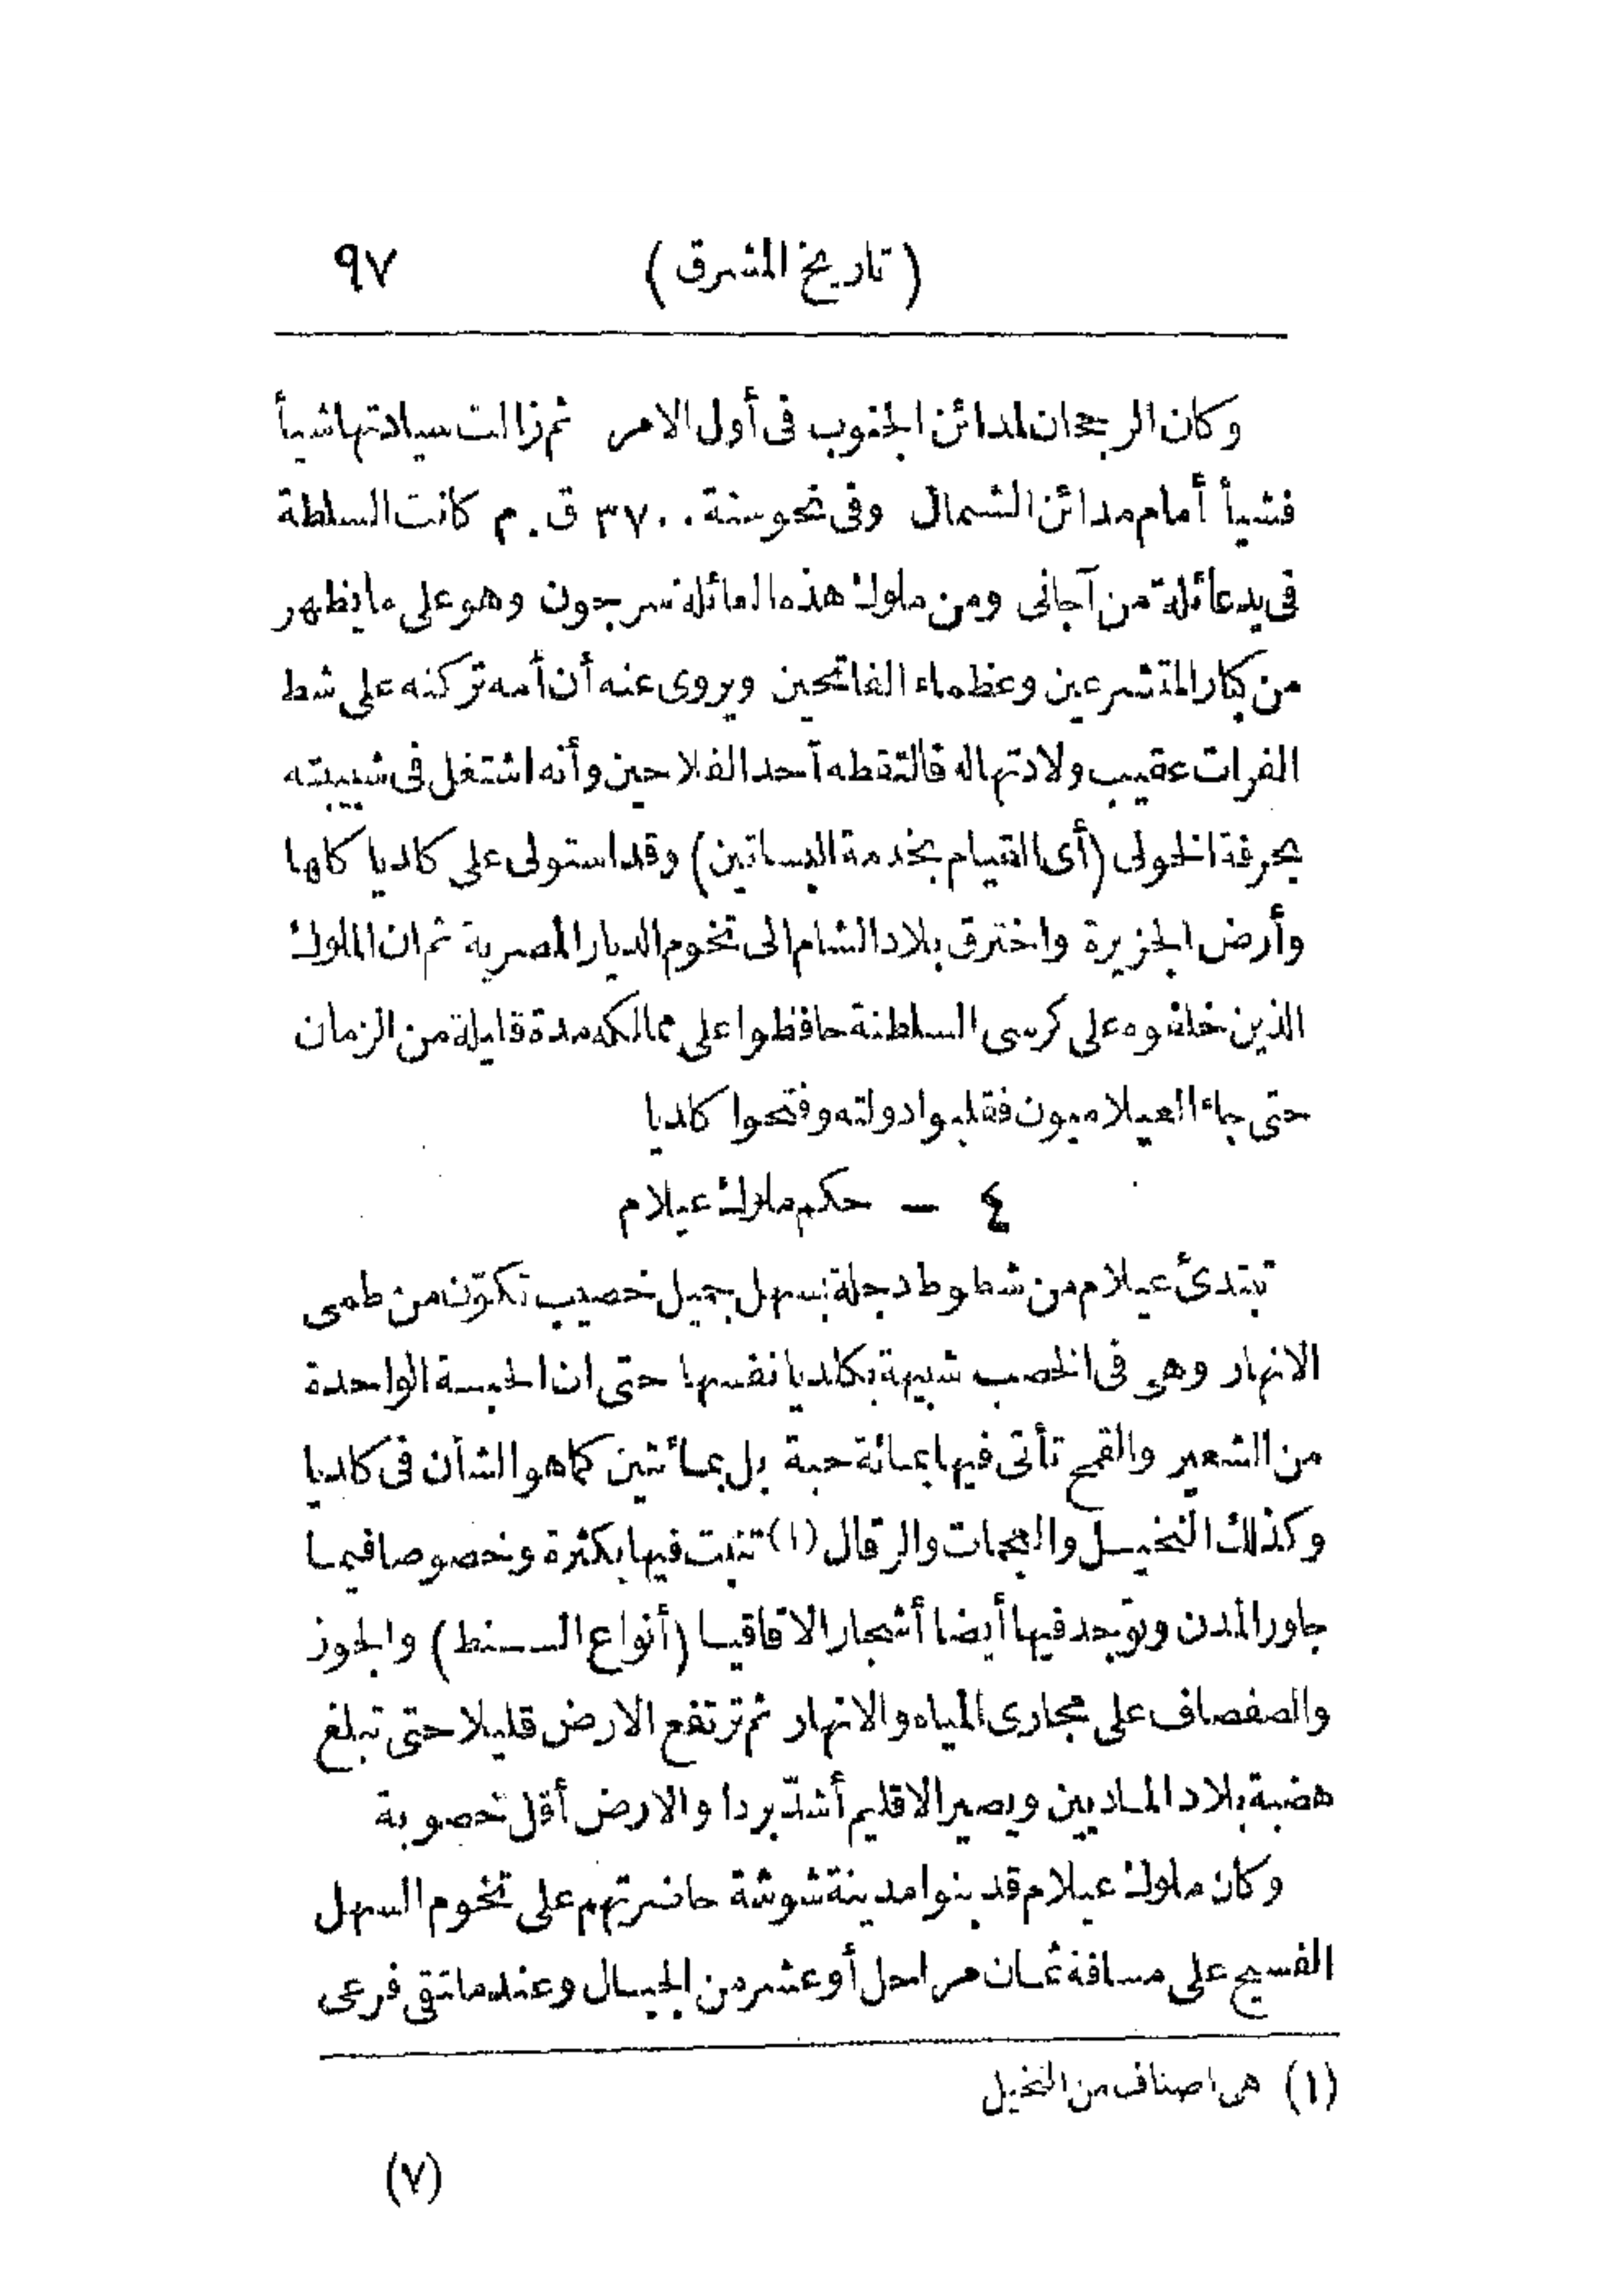 ( تاريخ المشرق ) ٩٧
وكان الرجحان لمدائن الجنوب فى أول الامر ثم زالت سيادتها شيأ
فشيأ أمام مدائن الشمال وفى نحو سنة ٣٧٠٠ ق. م كانت السلطة
فى يد عائلة من آجانى ومن ملوك هذه العائلة سرجون وهو على ما يظهر
من كبار المتشرعين وعظماء الفاتحين ويروى عنه أن أمه تركته على شط
الفرات عقيب ولادتها له فالتقطه أحد الفلاحين وأنه اشتغل فى شبيبته
بحرفة الخولى (أى القيام بخدمة البساتين) وقد استولى على كلديا كلها
وأرض الجزيرة واخترق بلاد الشام الى تخوم الديار المصرية ثم ان الملوك
الذين خلفوه على كرسى السلطنة حافظوا على ممالكه مدة قليلة من الزمان
حتى جاء العيلاميون فقلبوا دولته وفتحوا كلديا
٤ — حكم ملوك عيلام
تبتدئ عيلام من شطوط دجلة بسهل جميل خصيب تكوّن من طمى
الانهار وهى فى الخصب شبيهة بكلديا نفسها حتى ان الحبسة الواحدة
من الشعير والقمح تأتى فيها بمائة حبة بل بمائتين كما هو الشأن فى كلديا
وكذلك النخيل والعجمات والرقال (١) تنبت فيها بكثرة وخصوصا فيما
جاور المدن وتوجد فيها أيضا أشجار الاقاقيا (أنواع السنط) والجوز
والصفصاف على مجارى المياه والانهار ثم ترتفع الارض قليلا حتى تبلغ
هضبة بلاد الماديين ويصير الاقليم أشدّ بردا والارض أقل خصوبة
وكان ملوك عيلام قد بنوا مدينة شوشة حاضرتهم على تخوم السهل
الفسيح على مسافة ثمان مراحل أو عشر من الجبال وعند ملتقى فرعى
(١) هى اصناف من النخيل
(٧)